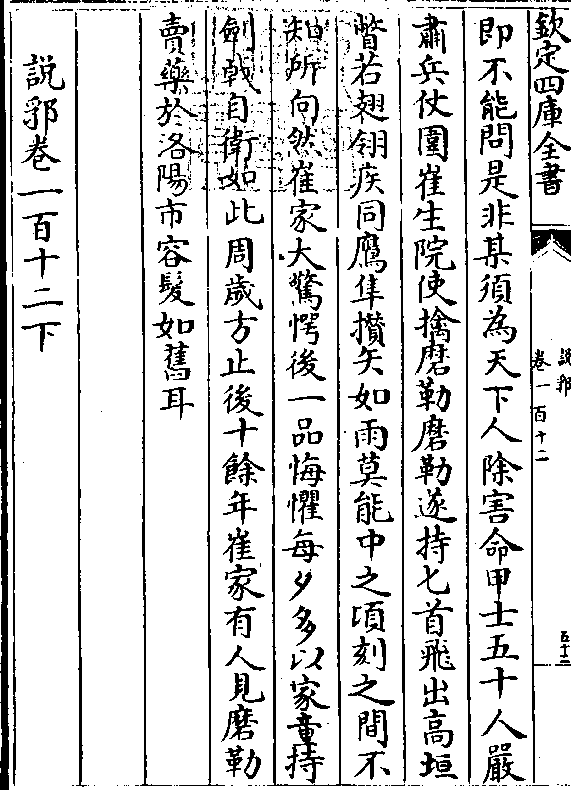 欽定四庫全書
說郛
卷一百十二
五十二
即不能問是非某須為天下人除害命甲士五十人嚴
肅兵仗圍崔生院使擒磨勒磨勒遂持匕首飛出高垣
瞥若翅翎疾同鷹隼攢矢如雨莫能中之頃刻之間不
知所向然崔家大驚愕後一品悔懼每夕多以家童持
劍戟自衛如此周歲方止後十餘年崔家有人見磨勒
賣藥於洛陽市容髮如舊耳
說郛卷一百十二下